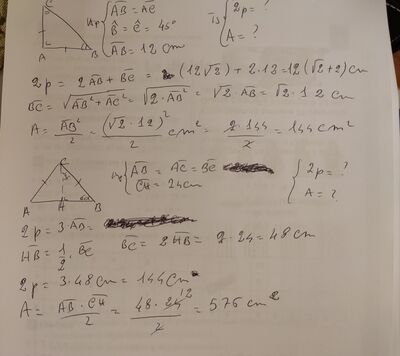 C
Hp { AB = AC
B̂ = Ĉ = 45°
AB = 12 cm
Ts { 2p = ?
A = ?
A B
2p = 2AB + BC = (12√2) + 2·12 = 12(√2+2) cm
BC = √(AB² + AC²) = √(2·AB²) = √2 AB = √2·12 cm
A = AB²/2 = (√2·12)²/2 cm² = 2·144/2 = 144 cm²
C
Hp { AB = AC = BC
CH = 24 cm
{ 2p = ?
A = ?
A H B
2p = 3AB =
HB = 1/2 BC BC = 2HB = 2·24 = 48 cm
2p = 3·48 cm = 144 cm
A = AB·CH/2 = 48·24 12/2 = 576 cm²